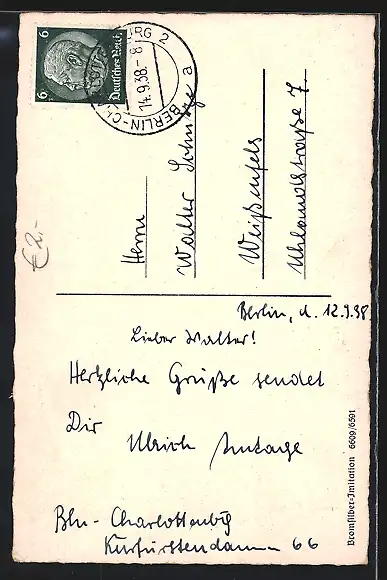 6 Deutsches Reich 6
BERLIN-CH RG 2
14.9.38.- 8
a
€2.-
Herrn
Walter
Weißenfels
Uhlandstraße 7
Berlin, d. 12.9.38
Lieber Walter!
Herzliche Grüße sendet
Dir
Ulrich
Bln - Charlottenbg
Kurfürstendamm 66
Bromsilber-Imitation 6609/6591